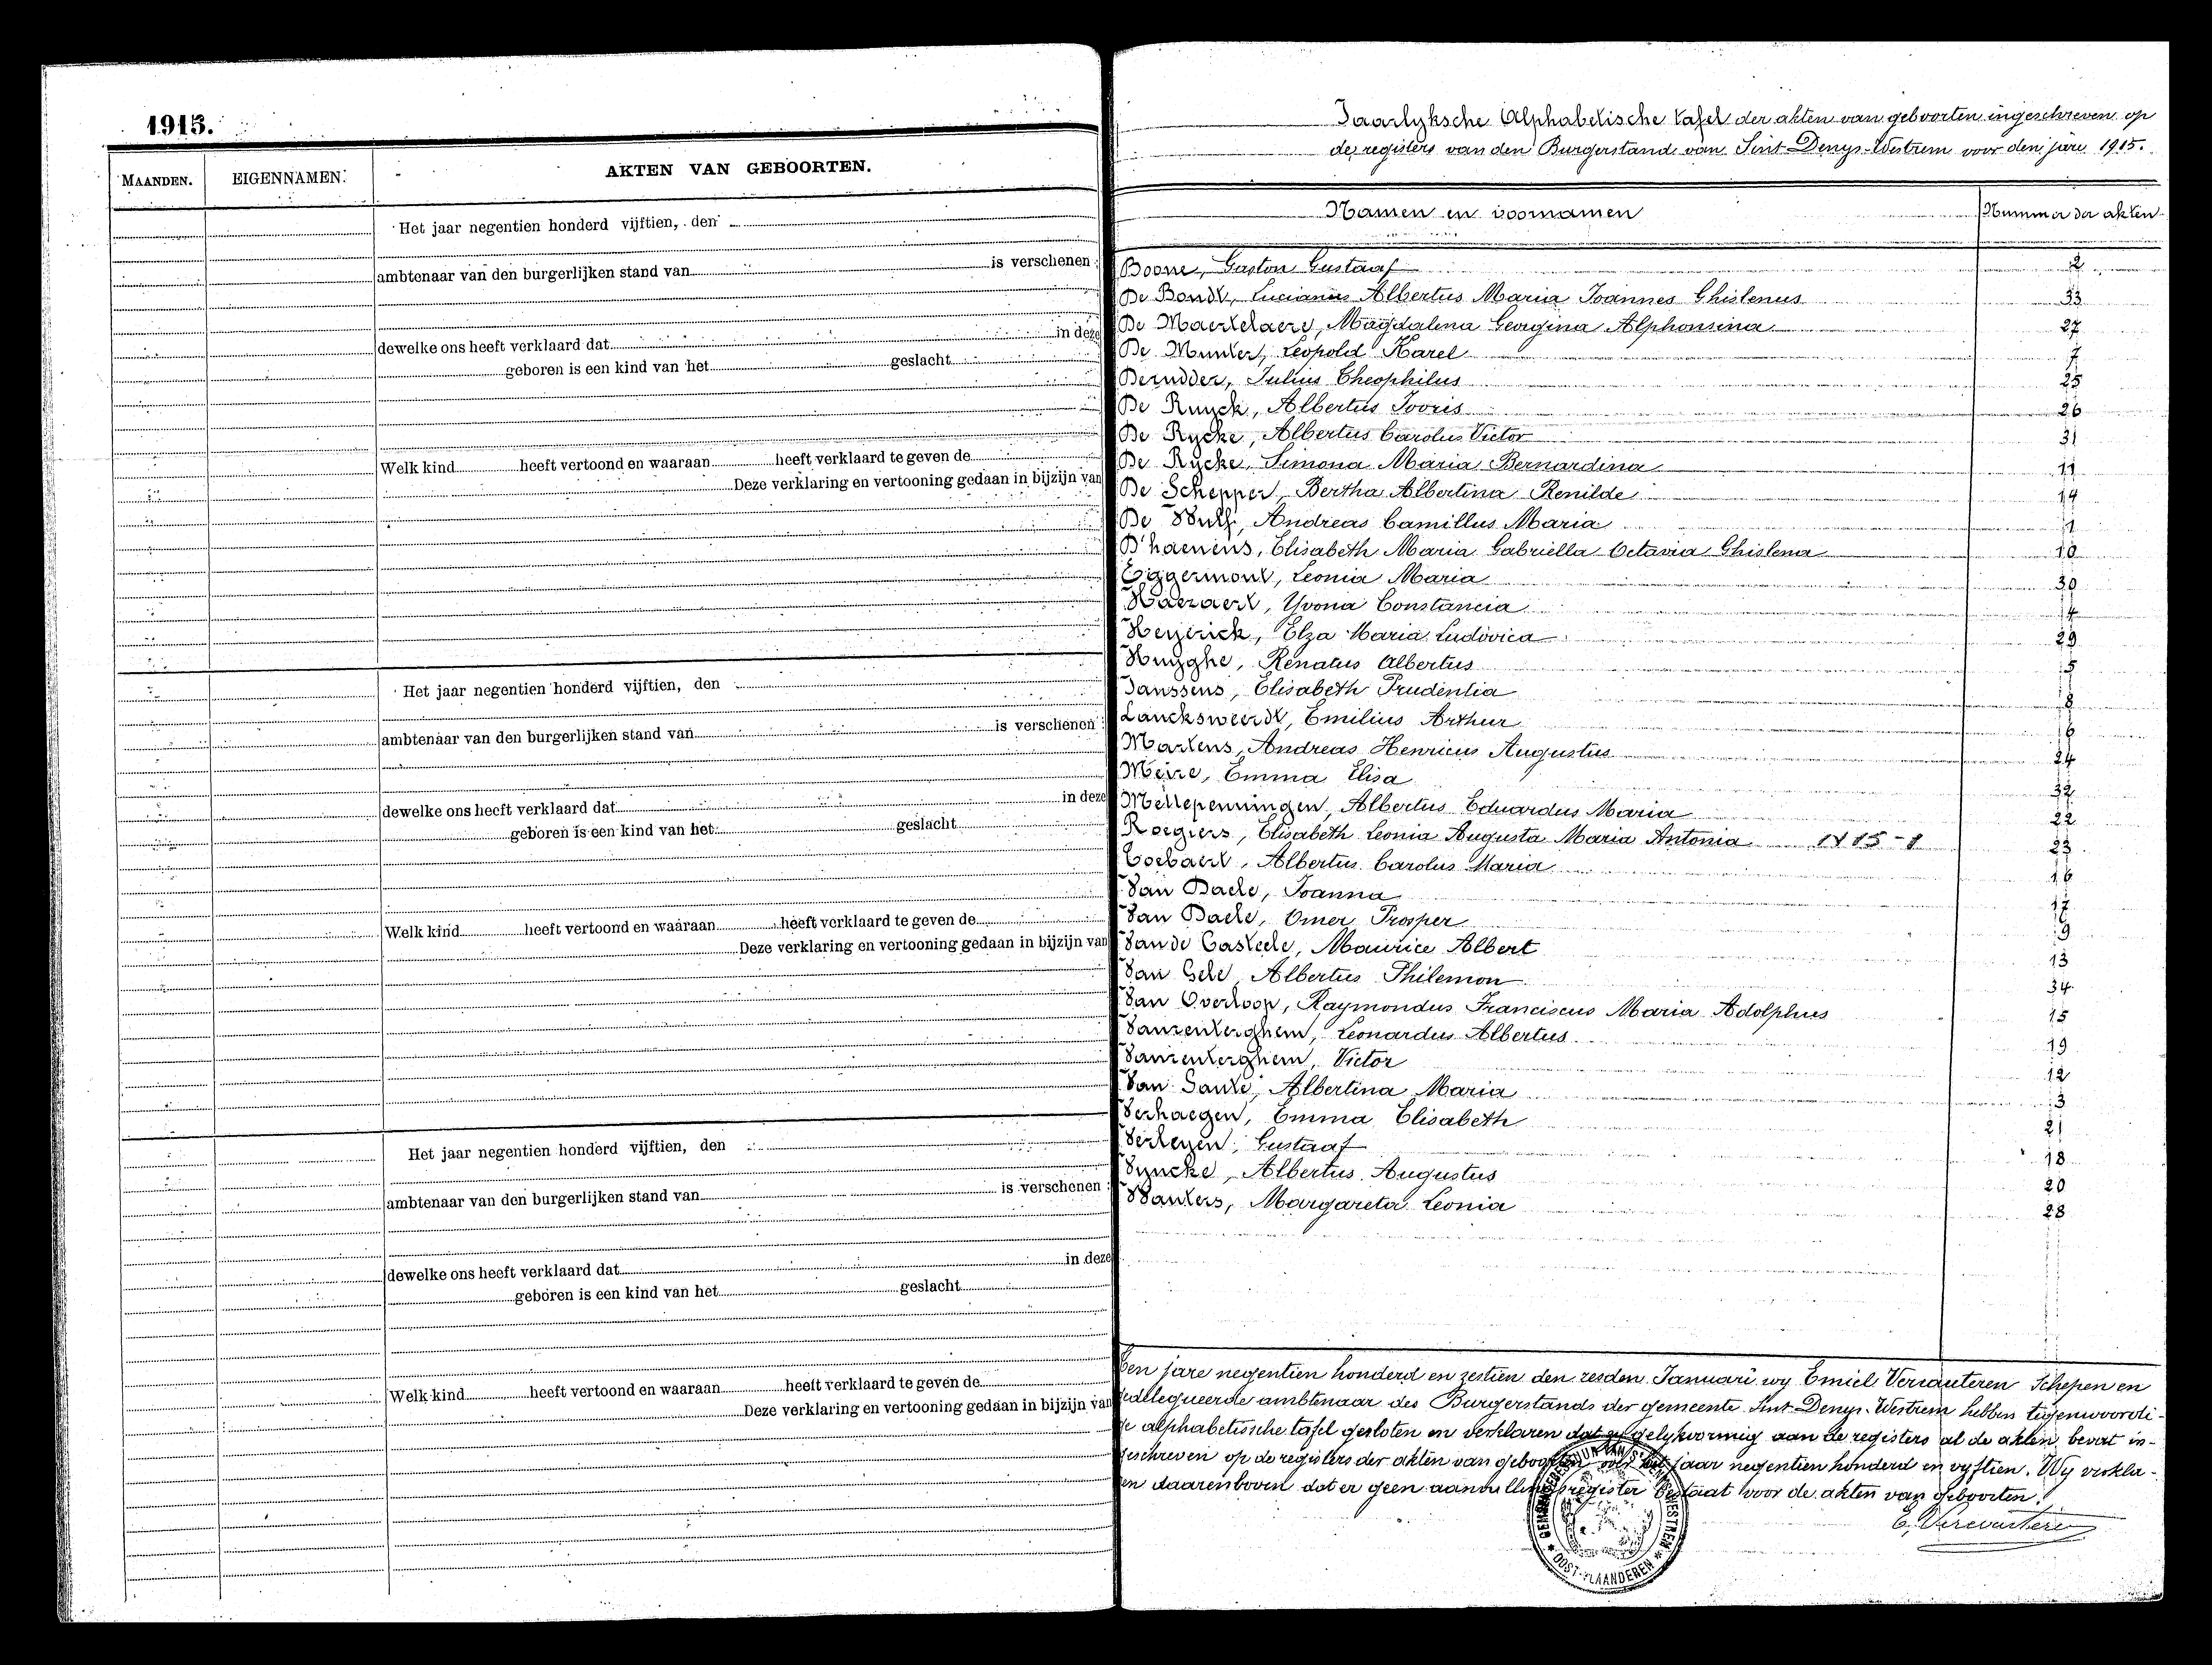 1915.
MAANDEN.
EIGENNAMEN.
AKTEN VAN GEBOORTEN.
Het jaar negentien honderd vijftien, den
ambtenaar van den burgerlijken stand van is verschenen :
dewelke ons heeft verklaard dat in deze
geboren is een kind van het geslacht
Welk kind heeft vertoond en waaraan heeft verklaard te geven de
Deze verklaring en vertooning gedaan in bijzijn van
Het jaar negentien honderd vijftien, den
ambtenaar van den burgerlijken stand van is verschenen :
dewelke ons heeft verklaard dat in deze
geboren is een kind van het geslacht
Welk kind heeft vertoond en waaraan heeft verklaard te geven de
Deze verklaring en vertooning gedaan in bijzijn van
Het jaar negentien honderd vijftien, den
ambtenaar van den burgerlijken stand van is verschenen :
dewelke ons heeft verklaard dat in deze
geboren is een kind van het geslacht
Welk kind heeft vertoond en waaraan heeft verklaard te geven de
Deze verklaring en vertooning gedaan in bijzijn van
Jaarlyksche Alphabetische tafel der akten van geboorten ingeschreven op
de registers van den Burgerstand van Sint-Denys-Westrem voor den jare 1915.
Namen en voornamen Nummer der akten
Boone, Gaston Gustaaf 2
De Bondt, Lucianus Albertus Maria Joannes Ghislenus 33
De Maertelaere, Magdalena Georgina Alphonsina 27
De Munter, Leopold Karel 7
Derudder, Julius Theophilus 25
De Ruyck, Albertus Jooris 26
De Rycke, Albertus Carolus Victor 31
De Rycke, Simona Maria Bernardina 11
De Schepper, Bertha Albertina Renilde 14
De Wulf, Andreas Camillus Maria 1
D'haenens, Elisabeth Maria Gabriella Octavia Ghislena 10
Eggermont, Leonia Maria 30
Haezaert, Yvona Constancia 4
Heyerick, Elza Maria Ludovica 29
Huyghe, Renatus Albertus 5
Janssens, Elisabeth Prudentia 8
Lancksweerdt, Emilius Arthur 6
Martens, Andreas Henricus Augustus 24
Meire, Emma Elisa 32
Mettepenningen, Albertus Eduardus Maria 22
Roegiers, Elisabeth Leonia Augusta Maria Antonia 23
Toebaert, Albertus Carolus Maria 16
Van Daele, Joanna 17
Van Daele, Omer Prosper 9
Van de Casteele, Maurice Albert 13
Van Gele, Albertus Philemon 34
Van Overloop, Raymondus Franciscus Maria Adolphus 15
Vanrenterghem, Leonardus Albertus 19
Vanrenterghem, Victor 12
Van Sante, Albertina Maria 3
Verhaegen, Emma Elisabeth 21
Verleyen, Gustaaf 18
Vyncke, Albertus Augustus 20
Wauters, Margareta Leonia 28
Ten jare negentien honderd en zestien den zesden Januari wy Emiel Vercauteren Schepen en
gedelegueerde ambtenaar des Burgerstands der gemeente Sint-Denys-Westrem hebben tegenwoordi-
ge alphabetische tafel gesloten en verklaren dat zy gelykvormig aan de registers al de akten bevat in-
geschreven op de registers der akten van geboorten over het jaar negentien honderd en vyftien. Wy verkla-
en daarenboven dat er geen aanvullingsregister bestaat voor de akten van geboorten.
E. Vercauteren
OOST-VLAANDEREN